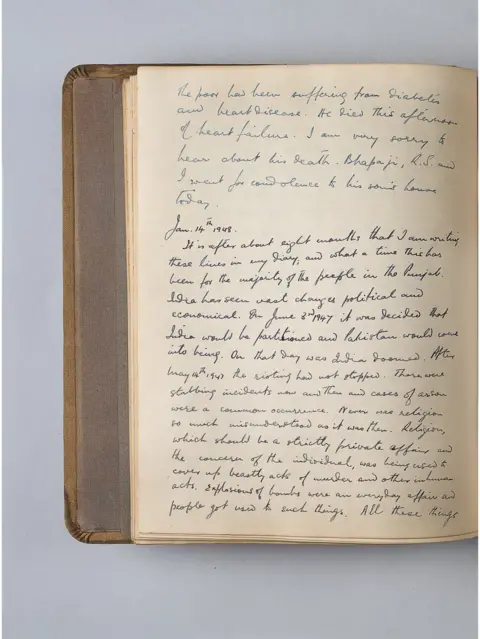 the poor had been suffering from diabetes
and heart disease. He died this afternoon
of heart failure. I am very sorry to
hear about his death. Bhapaji, R.S. and
I went for condolence to his son's house
today.
Jan. 14th 1948.
It is after about eight months that I am writing
these lines in my diary, and what a time this has
been for the majority of the people in the Punjab.
India has seen vast changes political and
economical. On June 3rd 1947 it was decided that
India would be partitioned and Pakistan would come
into being. On that day was India doomed. After
May 14th 1947 the rioting had not stopped. There were
stabbing incidents now and then and cases of arson
were a common occurrence. Never was religion
so much misunderstood as it was then. Religion,
which should be a strictly private affair and
the concern of the individual, was being used to
cover up beastly acts of murder and other inhuman
acts. Explosions of bombs were an everyday affair and
people got used to such things. All these things